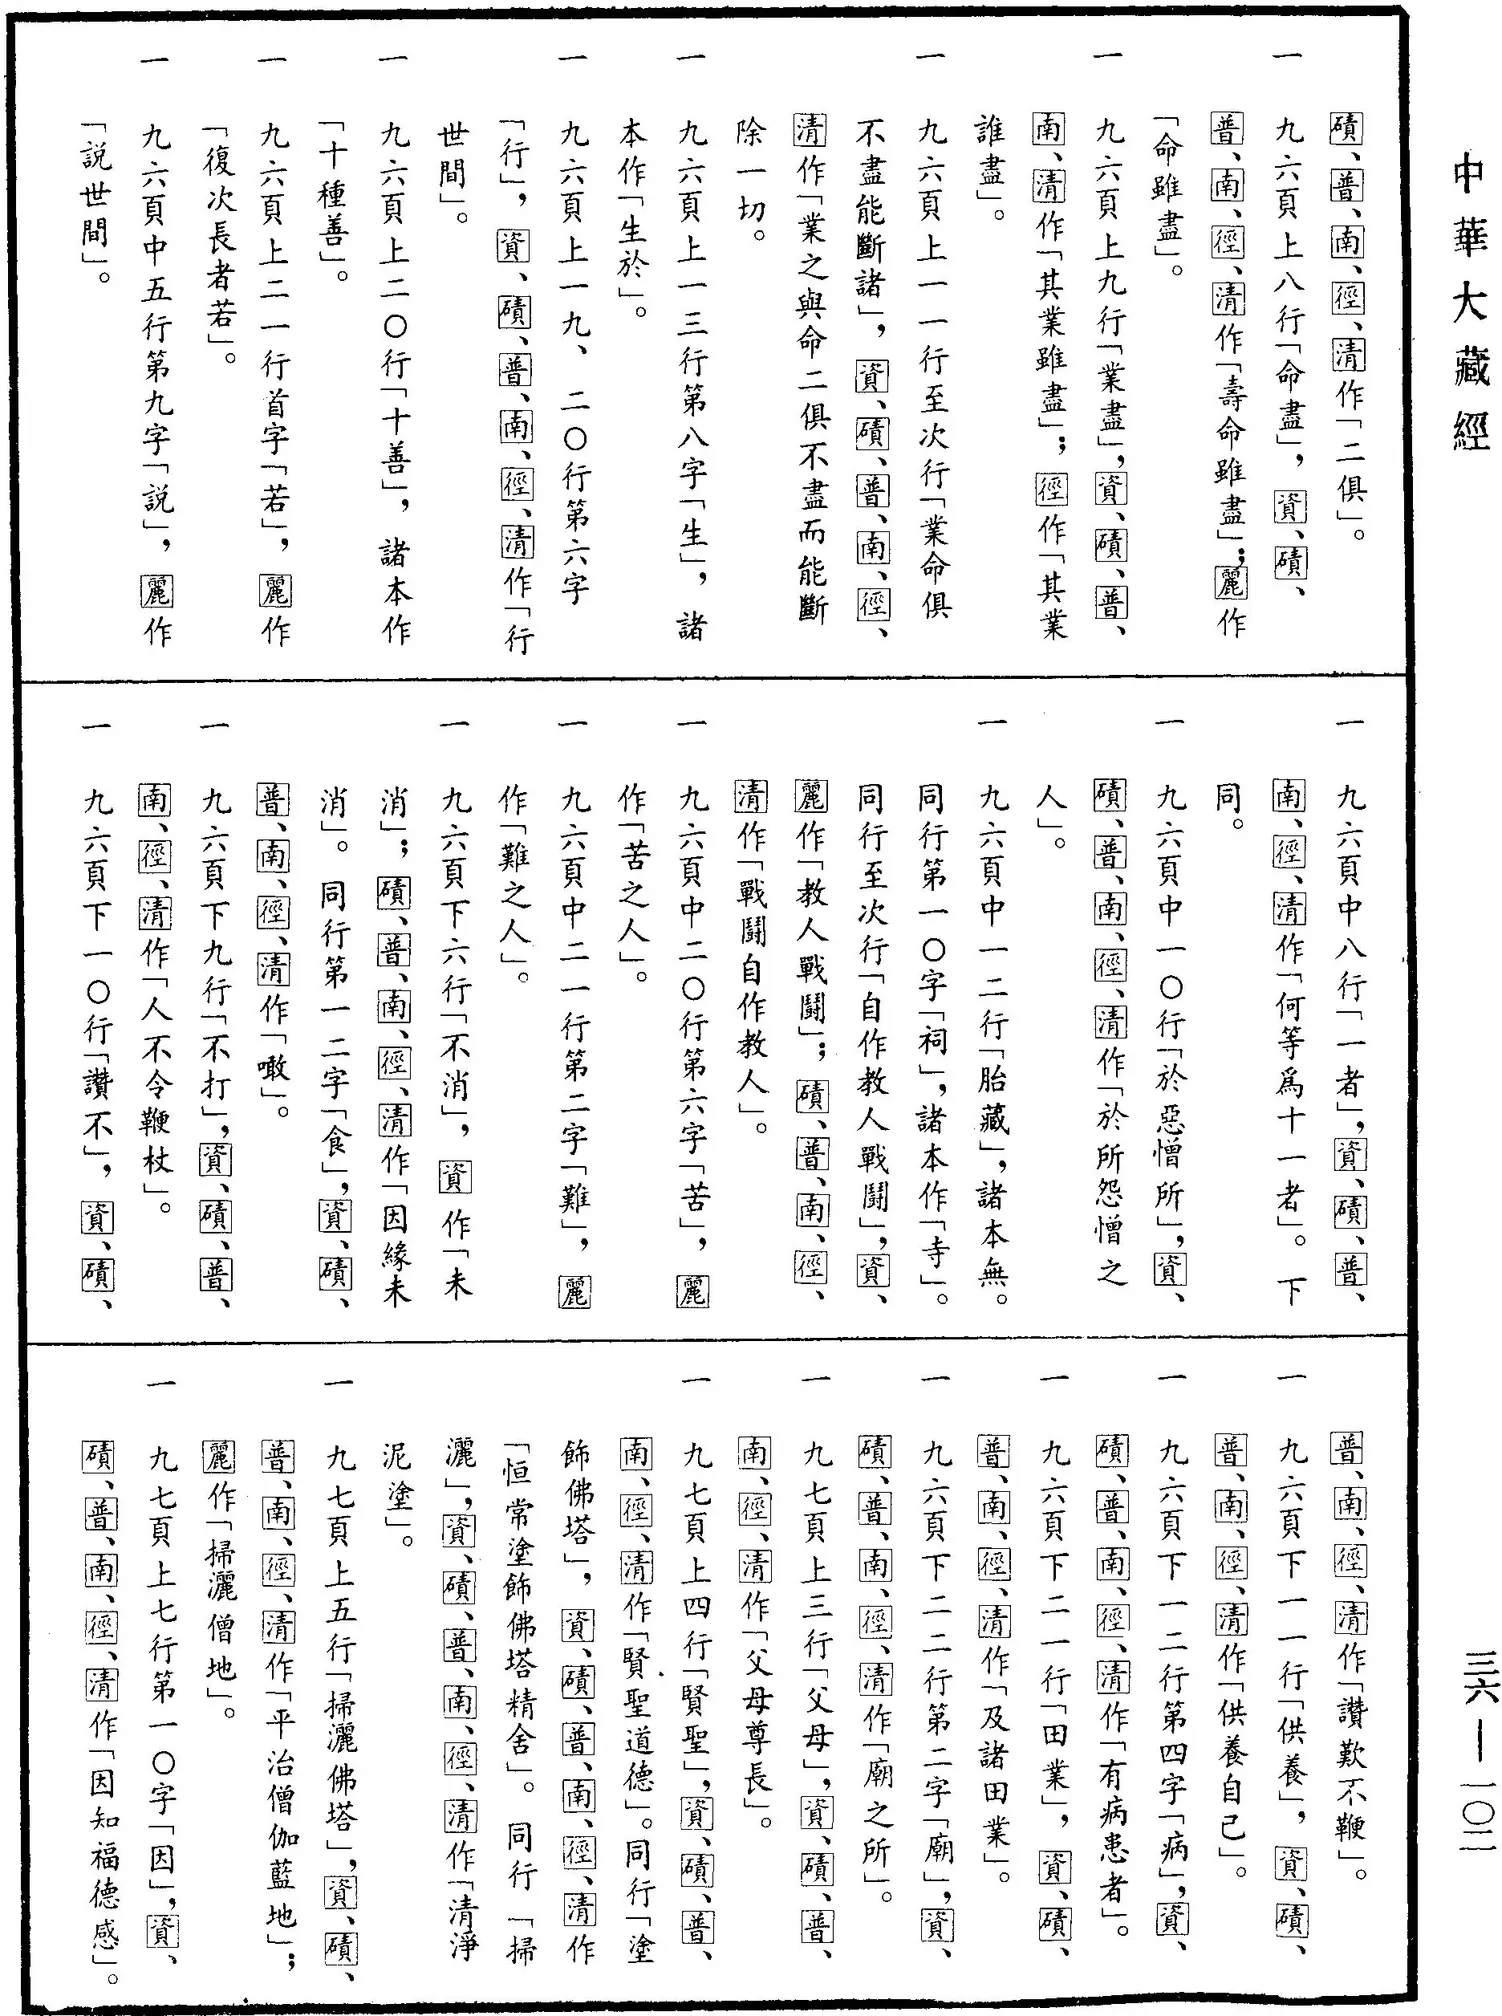 中華大藏經
磧、普、南、徑、清作「二俱」。
一　九六頁上八行「命盡」，資、磧、
普、南、徑、清作「壽命雖盡」；麗作
「命雖盡」。
一　九六頁上九行「業盡」，資、磧、普、
南、清作「其業雖盡」；徑作「其業
誰盡」。
一　九六頁上一一行至次行「業命俱
不盡能斷諸」，資、磧、普、南、徑、
清作「業之與命二俱不盡而能斷
除一切。
一　九六頁上一三行第八字「生」，諸
本作「生於」。
一　九六頁上一九、二〇行第六字
「行」，資、磧、普、南、徑、清作「行
世間」。
一　九六頁上二〇行「十善」，諸本作
「十種善」。
一　九六頁上二一行首字「若」，麗作
「復次長者若」。
一　九六頁中五行第九字「説」，麗作
「説世間」。
一　九六頁中八行「一者」，資、磧、普、
南、徑、清作「何等爲十一者」。下
同。
一　九六頁中一〇行「於惡憎所」，資、
磧、普、南、徑、清作「於所怨憎之
人」。
一　九六頁中一二行「胎藏」，諸本無。
同行第一〇字「祠」，諸本作「寺」。
同行至次行「自作教人戰鬪」，資、
麗作「教人戰鬪」；磧、普、南、徑、
清作「戰鬪自作教人」。
一　九六頁中二〇行第六字「苦」，麗
作「苦之人」。
一　九六頁中二一行第二字「難」，麗
作「難之人」。
一　九六頁下六行「不消」，資作「未
消」；磧、普、南、徑、清作「因緣未
消」。同行第一二字「食」，資、磧、
普、南、徑、清作「噉」。
一　九六頁下九行「不打」，資、磧、普、
南、徑、清作「人不令鞭杖」。
一　九六頁下一〇行「讚不」，資、磧、
普、南、徑、清作「讚歎不鞭」。
一　九六頁下一一行「供養」，資、磧、
普、南、徑、清作「供養自己」。
一　九六頁下一二行第四字「病」，資、
磧、普、南、徑、清作「有病患者」。
一　九六頁下二一行「田業」，資、磧、
普、南、徑、清作「及諸田業」。
一　九六頁下二二行第二字「廟」，資、
磧、普、南、徑、清作「廟之所」。
一　九七頁上三行「父母」，資、磧、普、
南、徑、清作「父母尊長」。
一　九七頁上四行「賢聖」，資、磧、普、
南、徑、清作「賢聖道德」。同行「塗
飾佛塔」，資、磧、普、南、徑、清作
「恒常塗飾佛塔精舍」。同行「掃
灑」，資、磧、普、南、徑、清作「清淨
泥塗」。
一　九七頁上五行「掃灑佛塔」，資、磧、
普、南、徑、清作「平治僧伽藍地」；
麗作「掃灑僧地」。
一　九七頁上七行第一〇字「因」，資、
磧、普、南、徑、清作「因知福德感」。
三六—一〇二